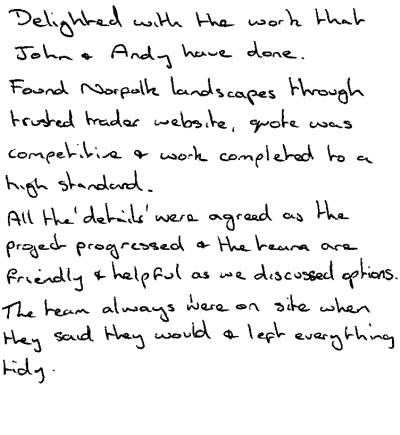 Delighted with the work that
John & Andy have done.
Found Norfolk landscapes through
trusted trader website, quote was
competitive & work completed to a
high standard.
All the 'details' were agreed as the
project progressed & the team are
friendly & helpful as we discussed options.
The team always were on site when
they said they would & left everything
tidy.